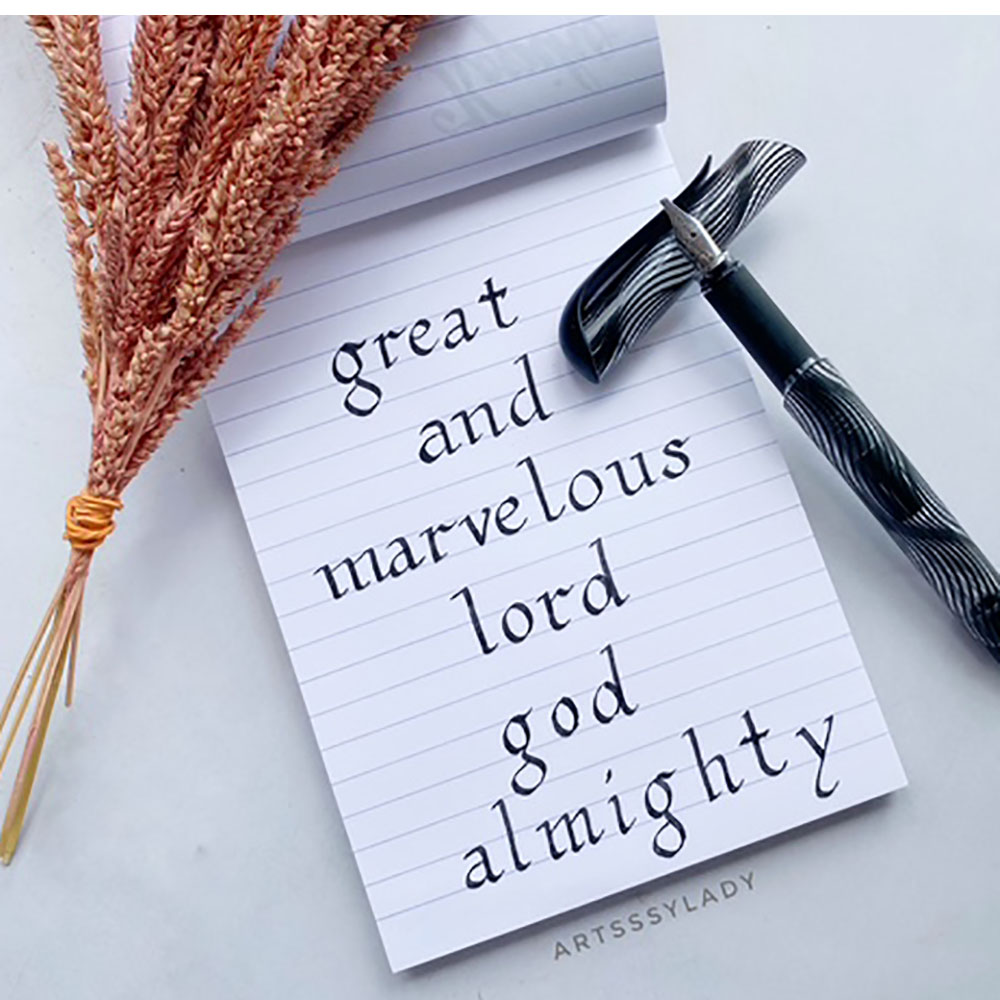 great
and
marvelous
lord
god
almighty
ARTSSSYLADY